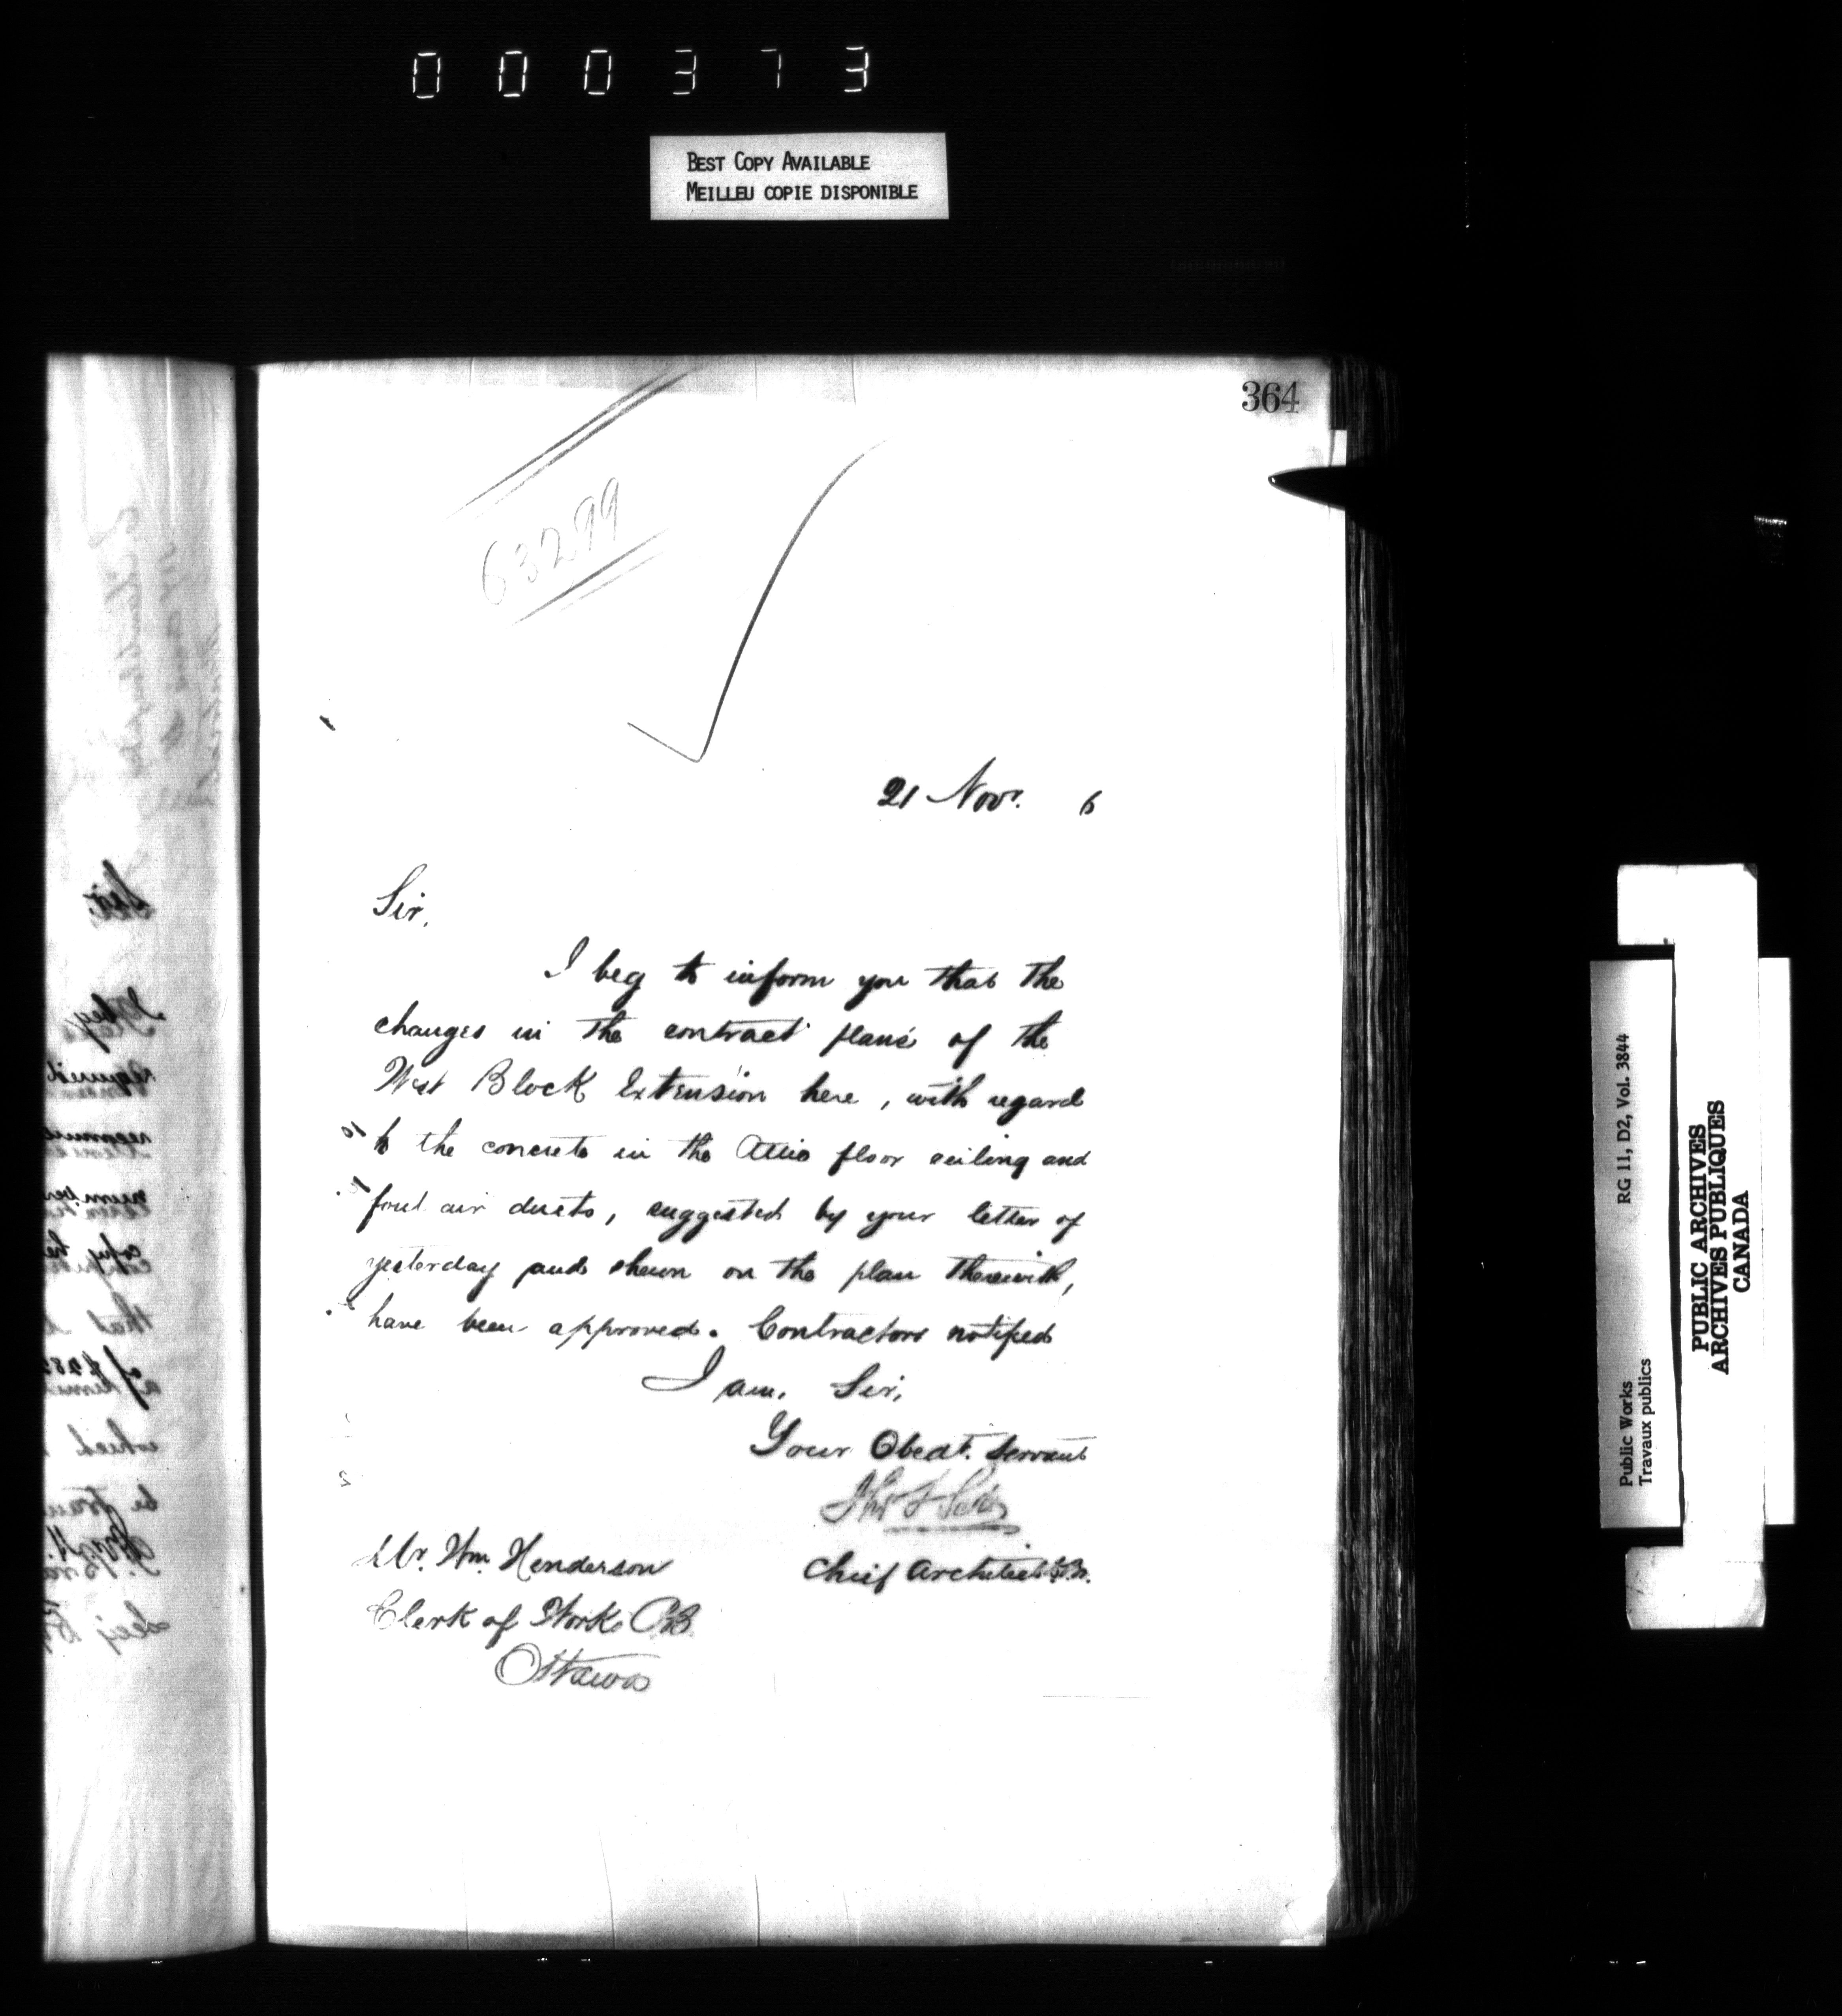 000373
BEST COPY AVAILABLE
MEILLEU COPIE DISPONIBLE
364
63299
21 Novr. 6
Sir,
I beg to inform you that the
changes in the contract plans of the
West Block Extension here, with regard
to the concrete in the Attic floor ceiling and
foul air ducts, suggested by your letter of
yesterday and shewn on the plan therewith,
have been approved. Contractors notified
I am, Sir,
Your Obedt. Servant
Chief Architect
Mr. Wm. Henderson
Clerk of Works P.B.
Ottawa
Public Works
Travaux publics
RG 11, D2, Vol. 3844
PUBLIC ARCHIVES
ARCHIVES PUBLIQUES
CANADA